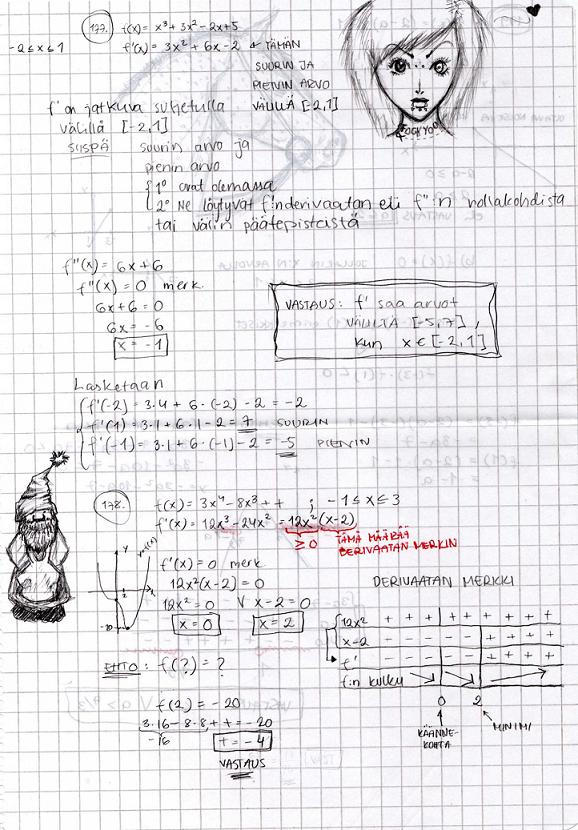 177. f(x) = x³ + 3x² - 2x + 5
-2 ≤ x ≤ 1
f'(x) = 3x² + 6x - 2 ← TÄMÄN
SUURIN JA
PIENIN ARVO
VÄLILLÄ [-2,1]
f' on jatkuva suljetulla
välillä [-2,1]
SIISPÄ suurin arvo ja
pienin arvo
1° ovat olemassa
2° Ne löytyvät f':n derivaatan eli f'':n nollakohdista
tai välin päätepisteistä
f''(x) = 6x + 6
f''(x) = 0 merk.
6x + 6 = 0
6x = -6
x = -1
VASTAUS: f' saa arvot
VÄLILTÄ [-5,7],
kun x ∈ [-2,1]
Lasketaan
f'(-2) = 3·4 + 6·(-2) - 2 = -2
f'(1) = 3·1 + 6·1 - 2 = 7 SUURIN
f'(-1) = 3·1 + 6·(-1) - 2 = -5 PIENIN
178. f(x) = 3x⁴ - 8x³ + t ; -1 ≤ x ≤ 3
f'(x) = 12x³ - 24x² = 12x²(x-2)
≥ 0 TÄMÄ MÄÄRÄÄ
DERIVAATAN MERKIN
f'(x) = 0 merk
12x²(x-2) = 0
12x² = 0 V x - 2 = 0
x = 0 x = 2
EHTO: f(?) = ?
f(2) = -20
3·16 - 8·8 + t = -20
-16 t = -4
VASTAUS
DERIVAATAN MERKKI
12x² + + + + + + + + +
x-2 - - - - - + + + +
f' - - - - - + + + +
f:n kulku
0 2
KÄÄNNE-
KOHTA
MINIMI